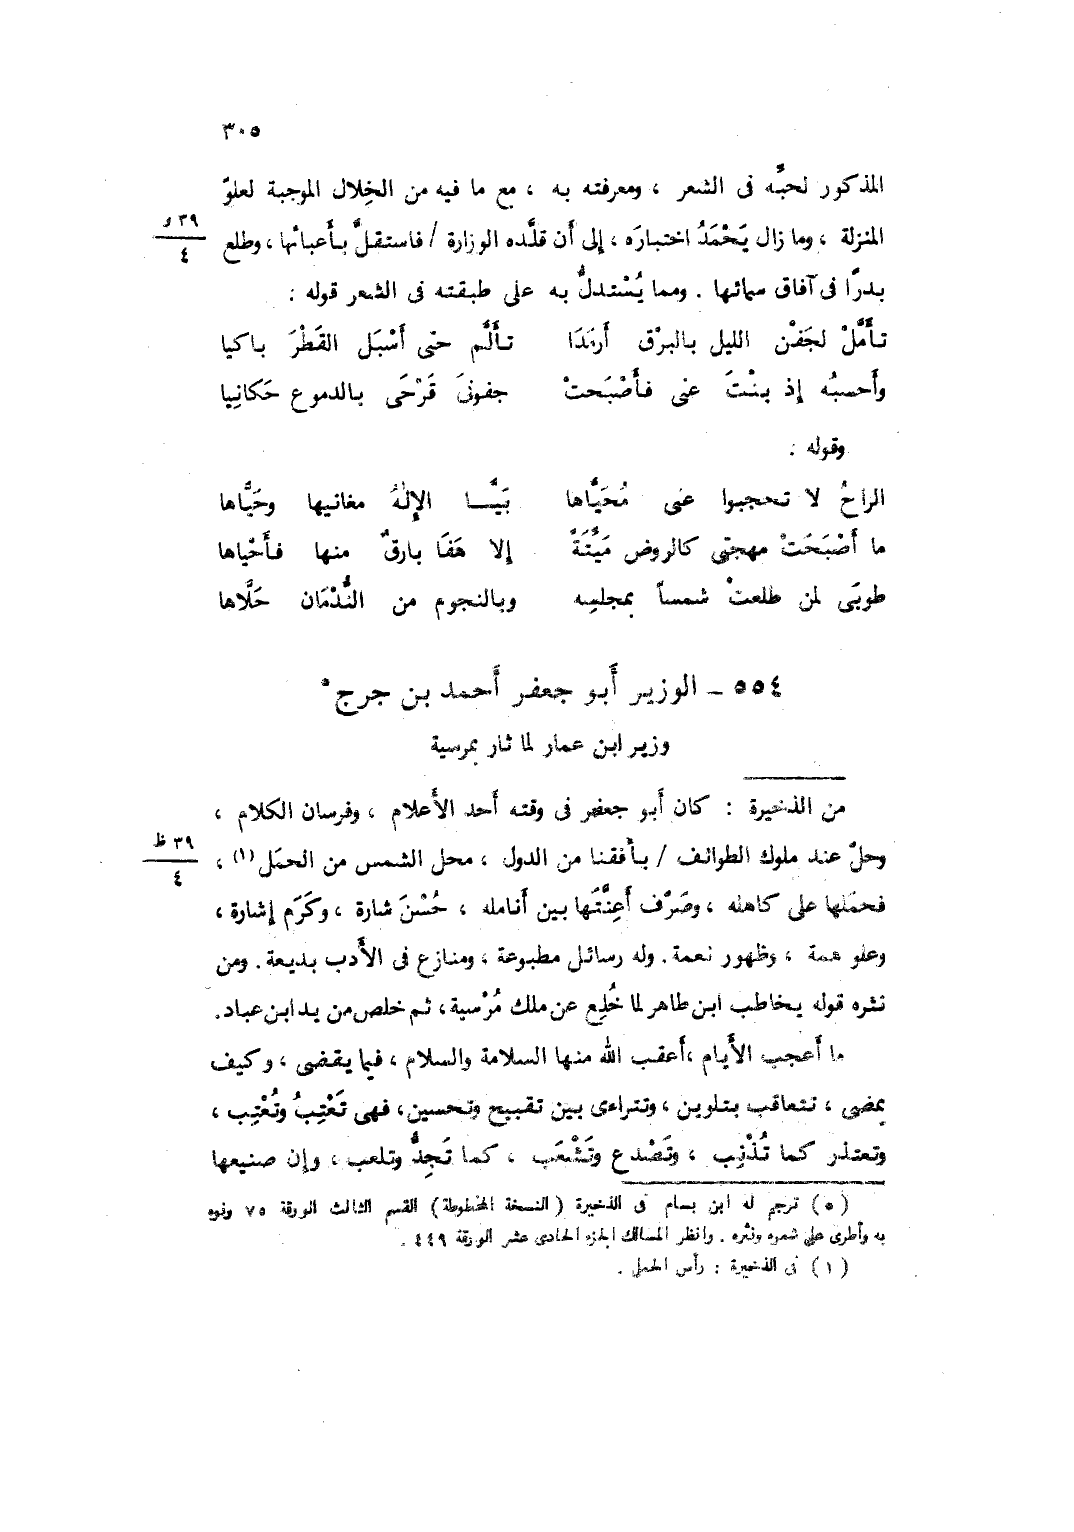 ٣٠٥
المذكور لحبِّه فى الشعر ، ومعرفته به ، مع ما فيه من الخِلال الموجبة لعلوّ
المنزلة ، وما زال يَحْمَدُ اختبارَه ، إلى أَن قلَّده الوزارة / فاستقلَّ بأَعبائها ، وطلع
٣٩ و
٤
بدرًا فى آفاق سمائها . ومما يُسْتدلُّ به على طبقته فى الشعر قوله :
تأَمَّلْ لجَفْن الليل بالبرْق أَرمَدَا تأَلَّم حتى أَسْبَل القَطْرَ باكيا
وأَحسبُه إذ بنْتَ عنى فأَصْبَحتْ جفونىَ قَرْحَى بالدموع حَكانِيا
وقوله :
الراحُ لا تحجبوا عنى مُحَيَّاها بَيَّـــا الإِلٰهُ مغانيها وحَيَّاها
ما أَصْبَحَتْ مهجتى كالروض مَيِّتَةً إلا هَفَا بارقٌ منها فأَحْياها
طوبَى لمن طلعتْ شمساً بمجلسِه وبالنجوم من النُّدْمَان حَلَّاها
٥٥٤ – الوزير أَبو جعفر أَحمد بن جرج *
وزير ابن عمار لما ثار بمرسية
من الذخيرة : كان أَبو جعفر فى وقته أَحد الأَعلام ، وفرسان الكلام ،
وحلّ عند ملوك الطوائف / بأُفقنا من الدول ، محل الشمس من الحمَل (١) ،
٣٩ ظ
٤
فحمَلها على كاهله ، وصَرَّف أَعِنَّتَها بين أَنامله ، حُسْنَ شارة ، وكَرَم إشارة ،
وعلو همة ، وظهور نعمة . وله رسائل مطبوعة ، ومنازع فى الأَدب بديعة . ومن
نثره قوله يخاطب ابن طاهر لما خُلِع عن ملك مُرْسية ، ثم خلص من يد ابن عباد .
ما أَعجب الأَيام ، أَعقب الله منها السلامة والسلام ، فيما يقضى ، وكيف
يمضى ، تتعاقب بتلوين ، وتتراءى بين تقبيح وتحسين ، فهى تَعْتِبُ وتُعْتِب ،
وتعتذر كما تُذْنِب ، وتَصْدع وتَشْعَب ، كما تَجِدُّ وتلعب ، وإن صنيعها
(*) ترجم له ابن بسام فى الذخيرة (النسخة المخطوطة) القسم الثالث الورقة ٧٥ ونوه
به وأطرى على شعره ونثره . وانظر المسالك الجزء الحادى عشر الورقة ٤٤٩ .
(١) فى الذخيرة : رأس الحمل .